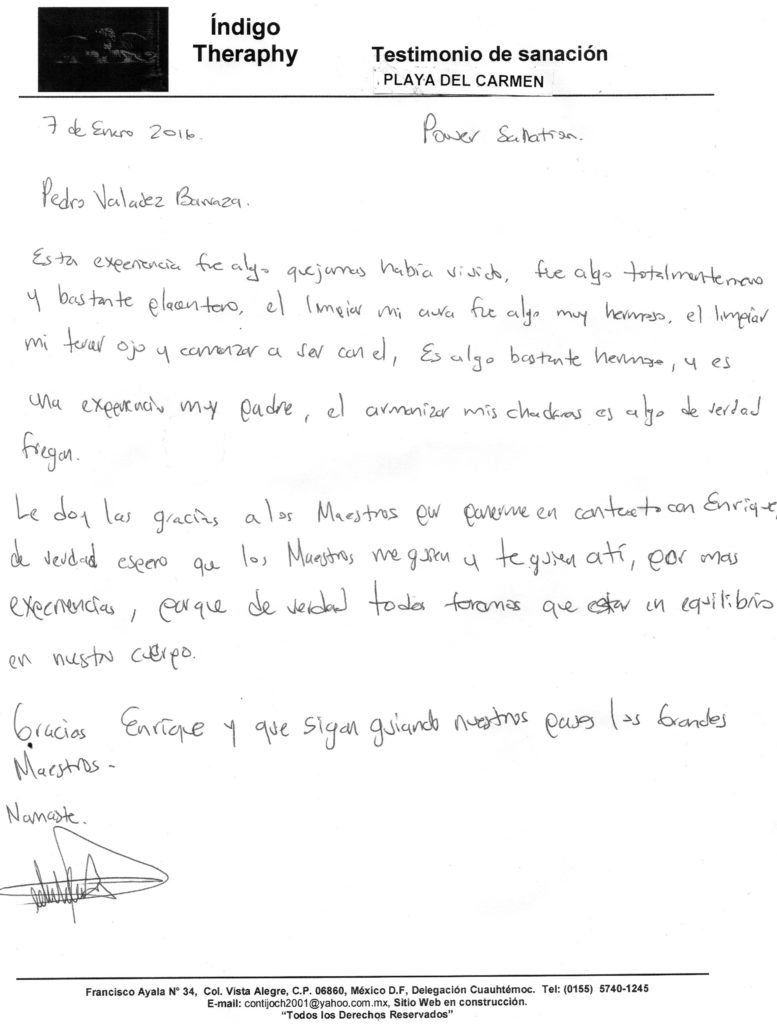 Índigo
Theraphy
Testimonio de sanación
PLAYA DEL CARMEN
7 de Enero 2016.
Power Sanation.
Pedro Valadez Barraza.
Esta experiencia fue algo que jamas había vivido, fue algo totalmente nuevo
y bastante placentero, el limpiar mi aura fue algo muy hermoso, el limpiar
mi tercer ojo y comenzar a ser con el, Es algo bastante hermoso, y es
una experiencia muy padre, el armonizar mis chackras es algo de verdad
fregon.
Le doy las gracias a los Maestros por ponerme en contacto con Enrique,
de verdad espero que los Maestros me guien y te guien a tí, por mas
experiencias, porque de verdad todos tenemos que estar en equilibrio
en nuestro cuerpo.
Gracias Enrique y que sigan guiando nuestros pasos los Grandes
Maestros -
Namaste.
Francisco Ayala N° 34, Col. Vista Alegre, C.P. 06860, México D.F, Delegación Cuauhtémoc. Tel: (0155) 5740-1245
E-mail: contijoch2001@yahoo.com.mx, Sitio Web en construcción.
"Todos los Derechos Reservados"